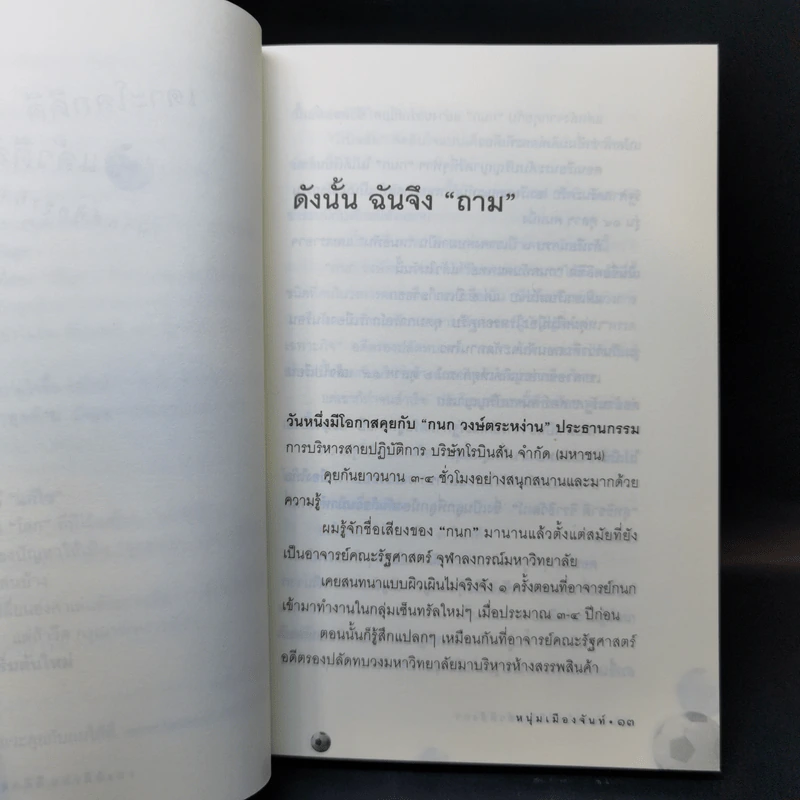 ดังนั้น ฉันจึง “ถาม”
วันหนึ่งมีโอกาสคุยกับ “กนก วงษ์ตระหง่าน” ประธานกรรม
การบริหารสายปฏิบัติการ บริษัทโรบินสัน จำกัด (มหาชน)
คุยกันยาวนาน ๓-๔ ชั่วโมงอย่างสนุกสนานและมากด้วย
ความรู้
ผมรู้จักชื่อเสียงของ “กนก” มานานแล้วตั้งแต่สมัยที่ยัง
เป็นอาจารย์คณะรัฐศาสตร์ จุฬาลงกรณ์มหาวิทยาลัย
เคยสนทนาแบบผิวเผินไม่จริงจัง ๑ ครั้งตอนที่อาจารย์กนก
เข้ามาทำงานในกลุ่มเซ็นทรัลใหม่ๆ เมื่อประมาณ ๓-๔ ปีก่อน
ตอนนั้นก็รู้สึกแปลกๆ เหมือนกันที่อาจารย์คณะรัฐศาสตร์
อดีตรองปลัดทบวงมหาวิทยาลัยมาบริหารห้างสรรพสินค้า
หนุ่มเมืองจันท์ • ๑๓